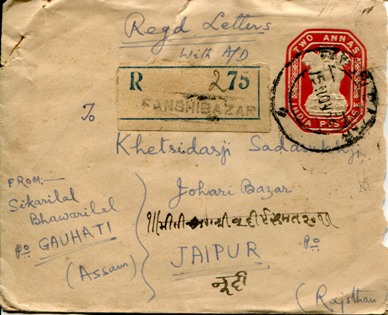 Regd Letters
With A/D
TWO ANNAS
INDIA POSTAGE
R 275
FANSHIBAZAR
To
Khetsidasji Sadasukhji
Johari Bazar
JAIPUR
(Rajsthan
FROM:—
Sikarilal
Bhawarilal
Po GAUHATI
(Assam)
Po